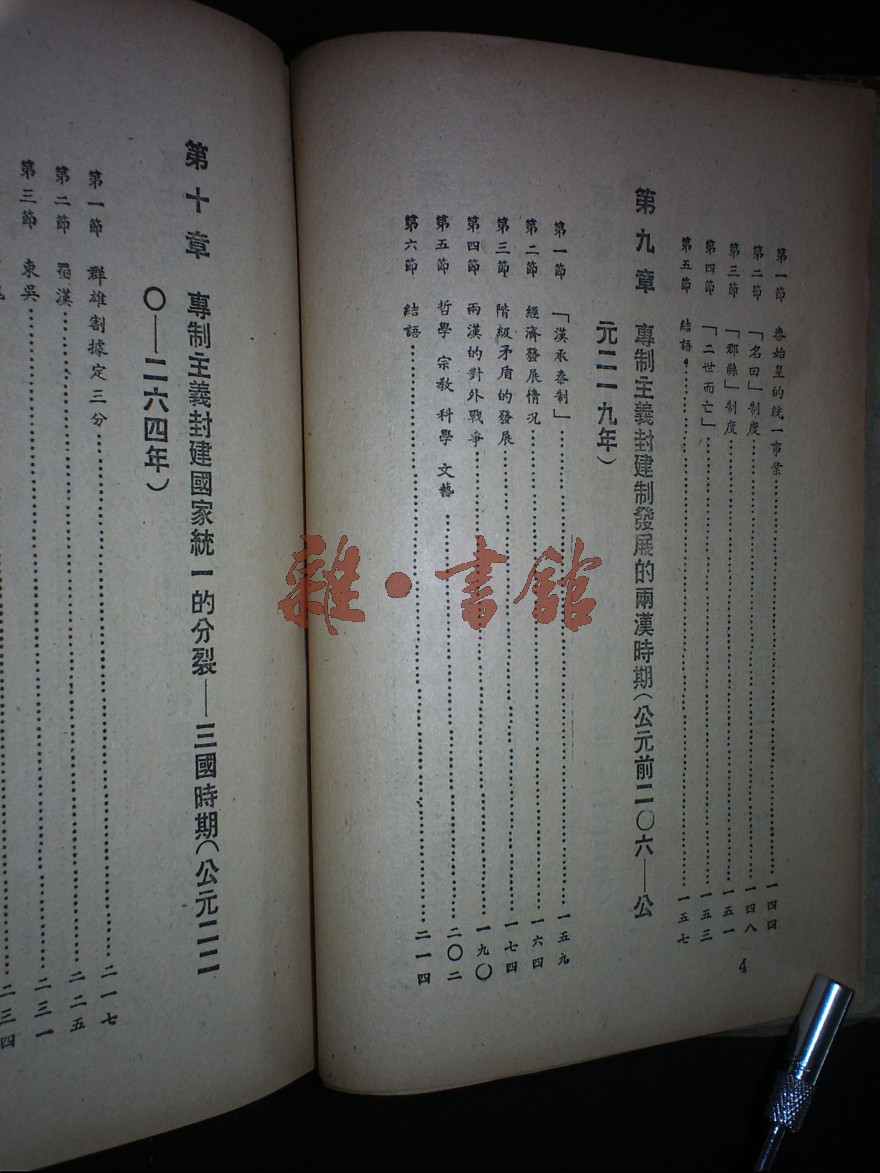 第一節 秦始皇的統一事業……一四四
第二節 「名田」制度……一四八
第三節 「郡縣」制度……一五一
第四節 「二世而亡」……一五三
第五節 結語……一五七
第九章 專制主義封建制發展的兩漢時期(公元前二〇六—公
元二一九年)
第一節 「漢承秦制」……一五九
第二節 經濟發展情況……一六四
第三節 階級矛盾的發展……一七四
第四節 兩漢的對外戰爭……一九〇
第五節 哲學 宗教 科學 文藝……二〇二
第六節 結語……二一四
4
第十章 專制主義封建國家統一的分裂—三國時期(公元二二
〇—二六四年)
第一節 群雄割據定三分……二一七
第二節 蜀漢……二二五
第三節 東吳……二三一
二三四
雜·書館